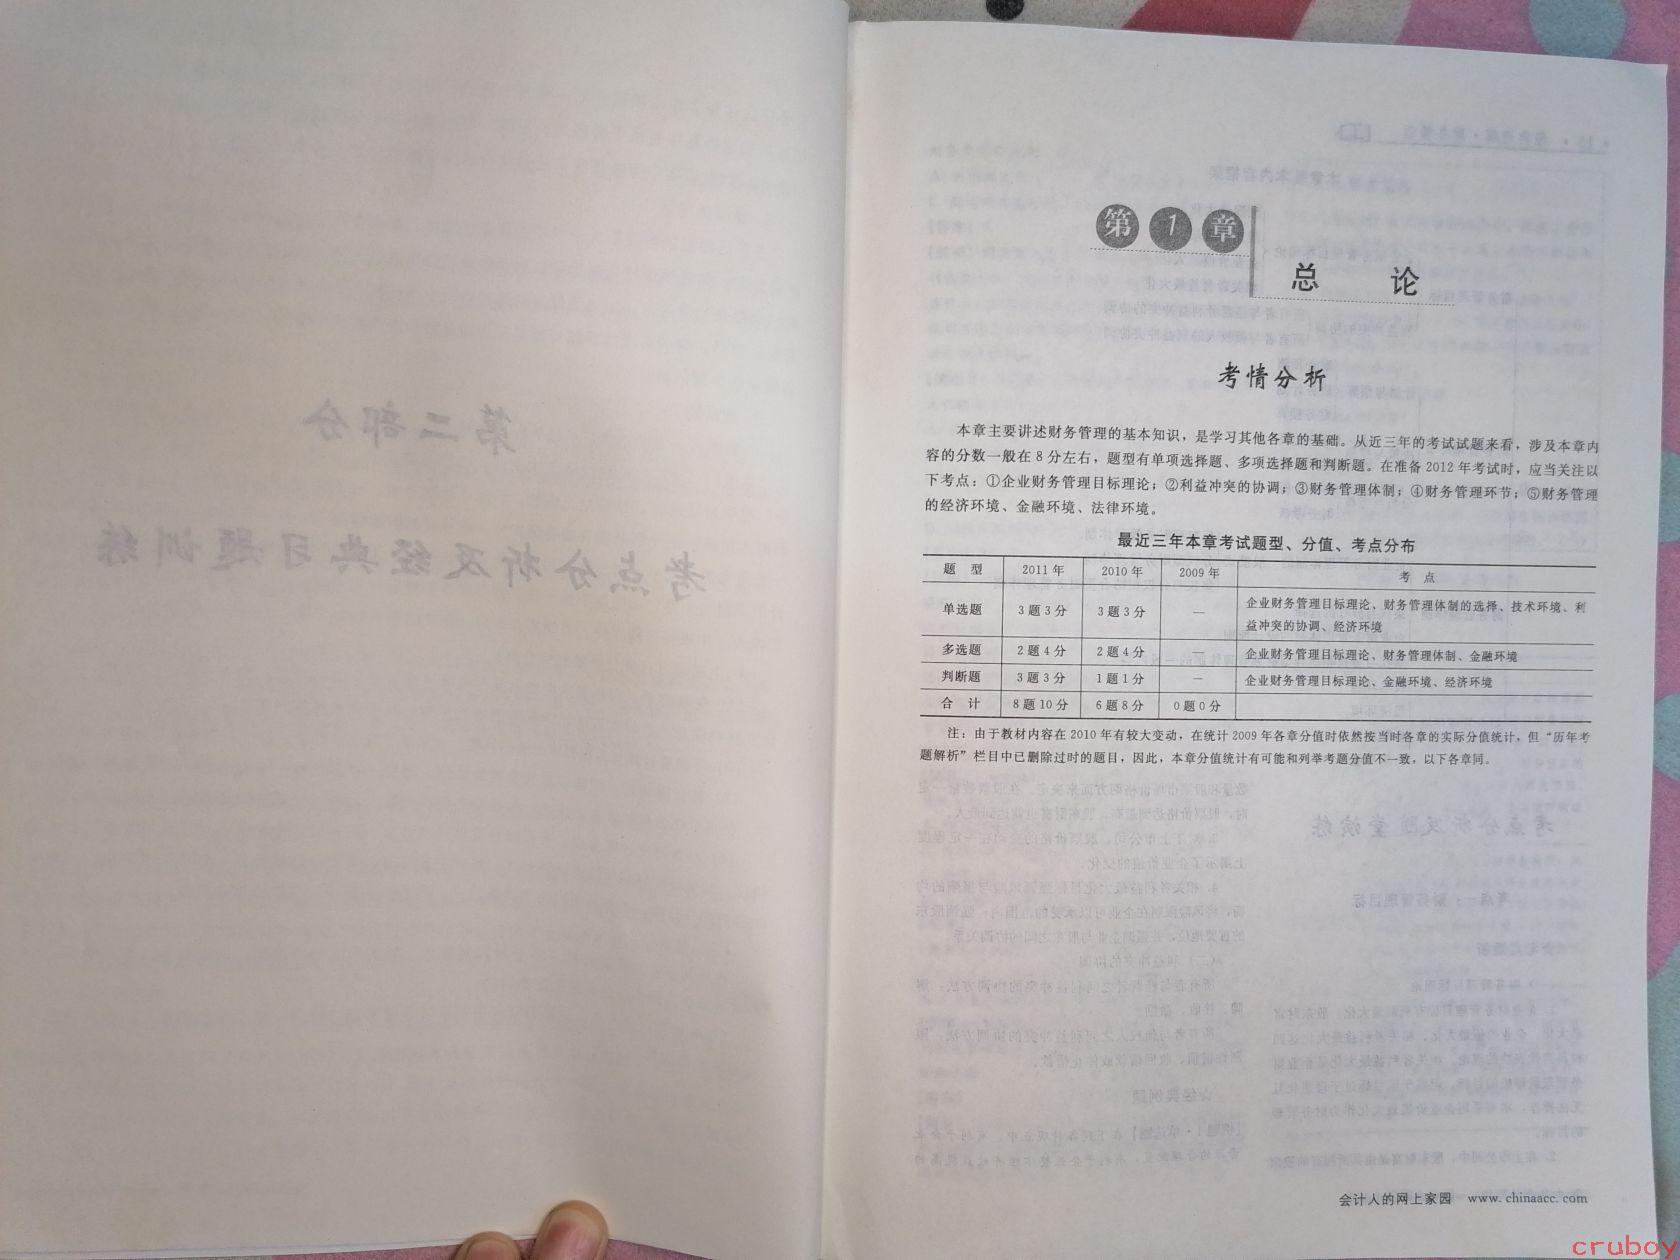 第1章
总 论
考情分析
本章主要讲述财务管理的基本知识，是学习其他各章的基础。从近三年的考试试题来看，涉及本章内
容的分数一般在8分左右，题型有单项选择题、多项选择题和判断题。在准备2012年考试时，应当关注以
下考点：①企业财务管理目标理论；②利益冲突的协调；③财务管理体制；④财务管理环节；⑤财务管理
的经济环境、金融环境、法律环境。
最近三年本章考试题型、分值、考点分布
题 型 2011年 2010年 2009年 考 点
单选题 3题3分 3题3分 — 企业财务管理目标理论、财务管理体制的选择、技术环境、利
益冲突的协调、经济环境
多选题 2题4分 2题4分 — 企业财务管理目标理论、财务管理体制、金融环境
判断题 3题3分 1题1分 — 企业财务管理目标理论、金融环境、经济环境
合 计 8题10分 6题8分 0题0分
注：由于教材内容在2010年有较大变动，在统计2009年各章分值时依然按当时各章的实际分值统计，但“历年考
题解析”栏目中已删除过时的题目，因此，本章分值统计有可能和列举考题分值不一致，以下各章同。
会计人的网上家园 www.chinaacc.com
第二部分
考点分析及经典习题训练
cruboy